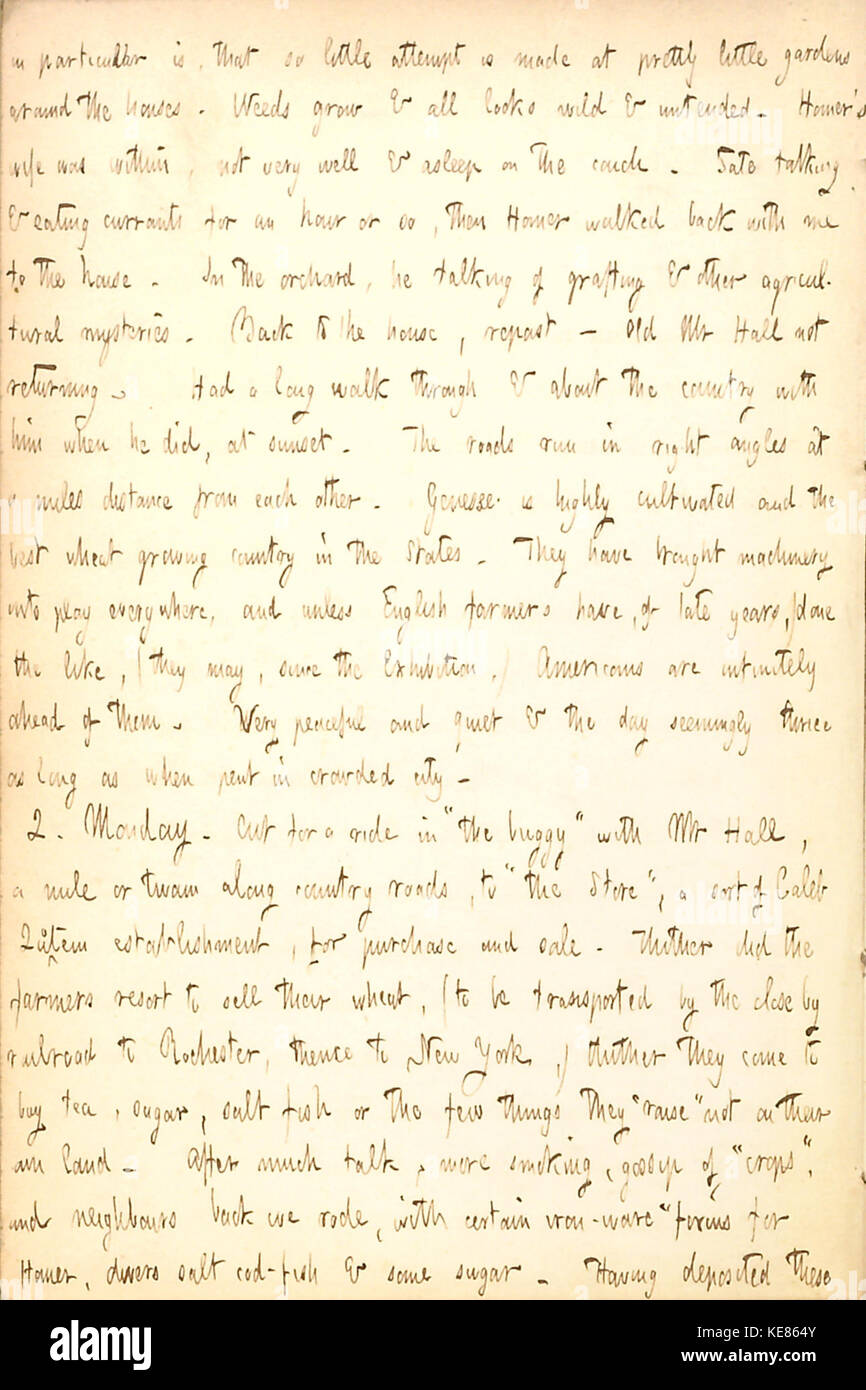 in particular is, that so little attempt is made at pretty little gardens
around the houses. Weeds grow & all looks wild & untended. Homer's
wife was within, not very well & asleep on the couch. Sate talking
& eating currants for an hour or so, then Homer walked back with me
to the house. In the orchard, he talking of grafting & other agricul-
tural mysteries. Back to the house, repast — Old Mr Hall not
returning. Had a long walk through & about the country with
him when he did, at sunset. The roads run in right angles at
miles distance from each other. Genesee is highly cultivated and the
best wheat growing country in the States. They have brought machinery
into play everywhere, and unless English farmers have, of late years, done
the like, (they may, since the Exhibition,) Americans are infinitely
ahead of them. Very peaceful and quiet & the day seemingly thrice
as long as when pent in crowded city —
2. Monday. Out for a ride in "the buggy" with Mr Hall,
a mile or twain along country roads, to "the Store", a sort of Caleb
Quotem establishment, for purchase and sale. Thither did the
farmers resort to sell their wheat, (to be transported by the close by
railroad to Rochester, thence to New York,) thither they come to
buy tea, sugar, salt fish or the few things they "raise" not on their
own land. After much talk, more smoking, gossip of "crops",
and neighbours back we rode, with certain iron-ware for
Homer, divers salt cod-fish & some sugar. Having deposited these
alamy
Image ID: KE864Y
www.alamy.com